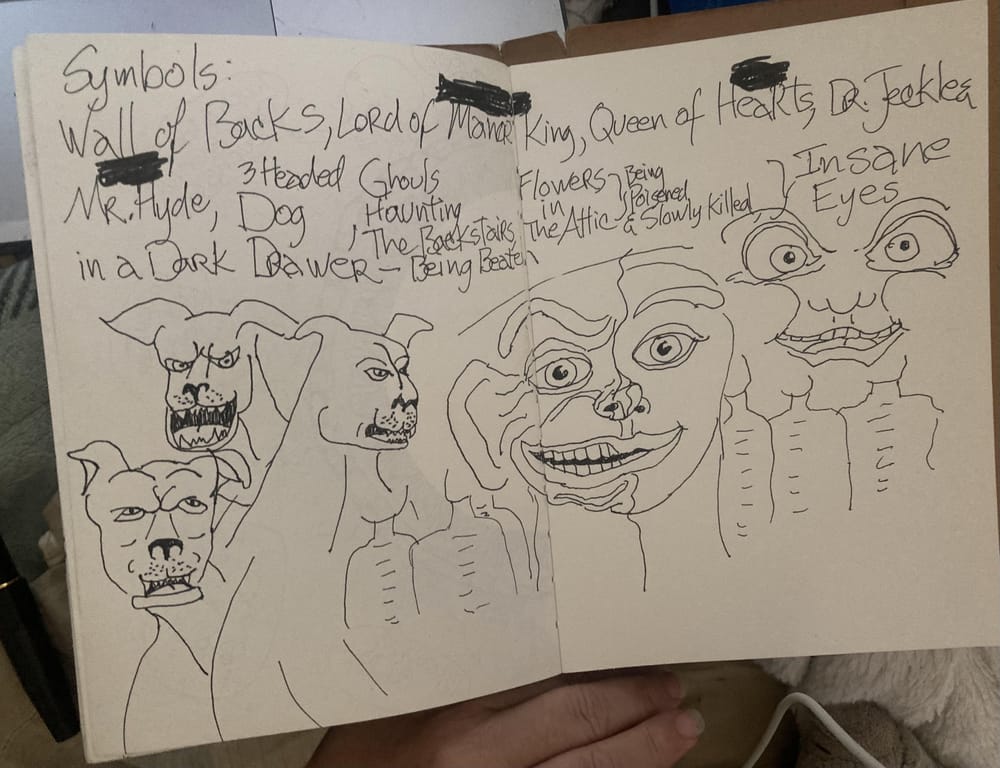 Symbols:
Wall of Backs, Lord of Manor King, Queen of Hearts, Dr. Jeckle &
Mr. Hyde, 3 Headed Dog, Ghouls Haunting The Backstairs, Flowers in The Attic } Being Poisened & Slowly Killed, } Insane Eyes
in a Dark Drawer – Being Beaten